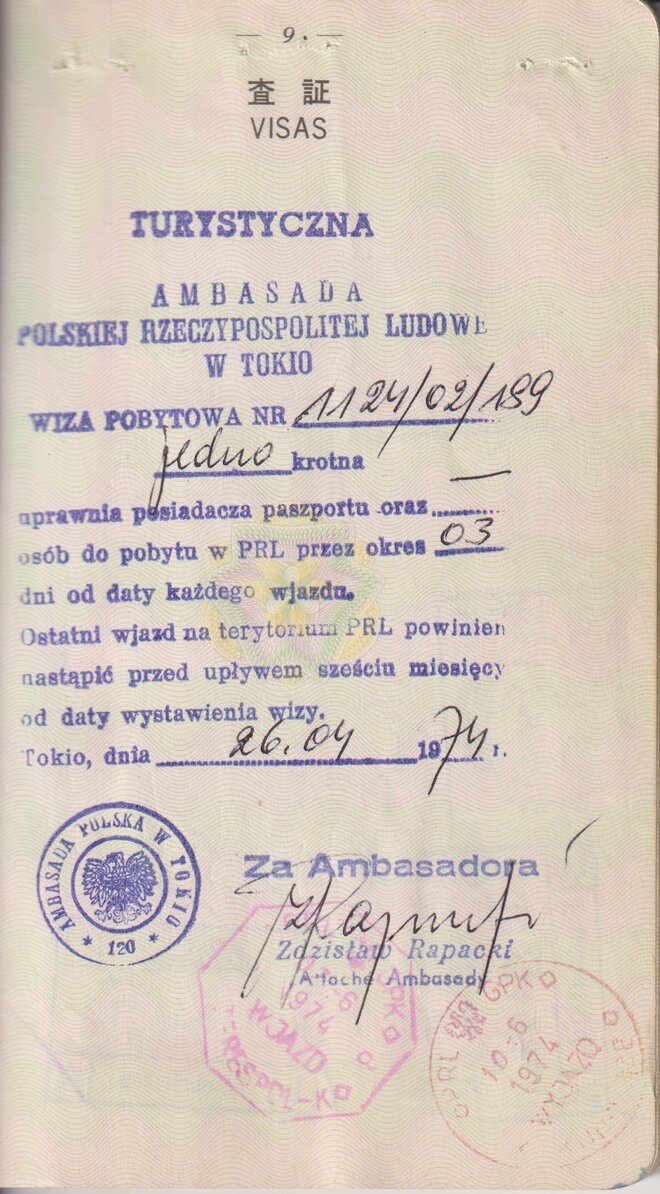 — 9. —
査 証
VISAS
TURYSTYCZNA
AMBASADA
POLSKIEJ RZECZYPOSPOLITEJ LUDOWE
W TOKIO
WIZA POBYTOWA NR 1124/02/189
jedno krotna
uprawnia posiadacza paszportu oraz —
osób do pobytu w PRL przez okres 03
dni od daty każdego wjazdu.
Ostatni wjazd na terytorium PRL powinien
nastąpić przed upływem sześciu miesięcy
od daty wystawienia wizy.
Tokio, dnia 26.04 1974 r.
AMBASADA POLSKA W TOKIO
* 120 *
Za Ambasadora
Zdzisław Rapacki
Attache Ambasady
GPK
1974
WJAZD
TERESPOL-K
PRL GPK
10-6
1974